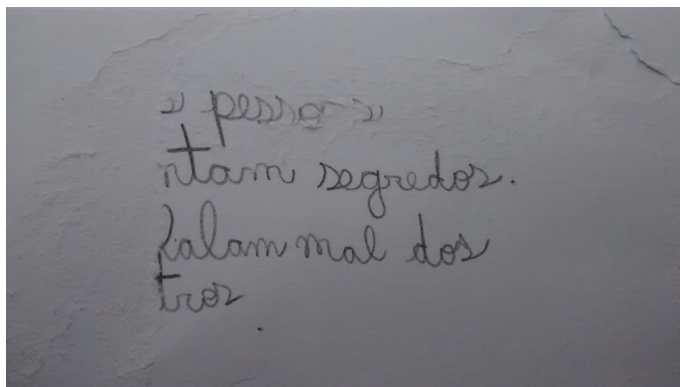 s pessoas
ntam segredos.
falam mal dos
tros